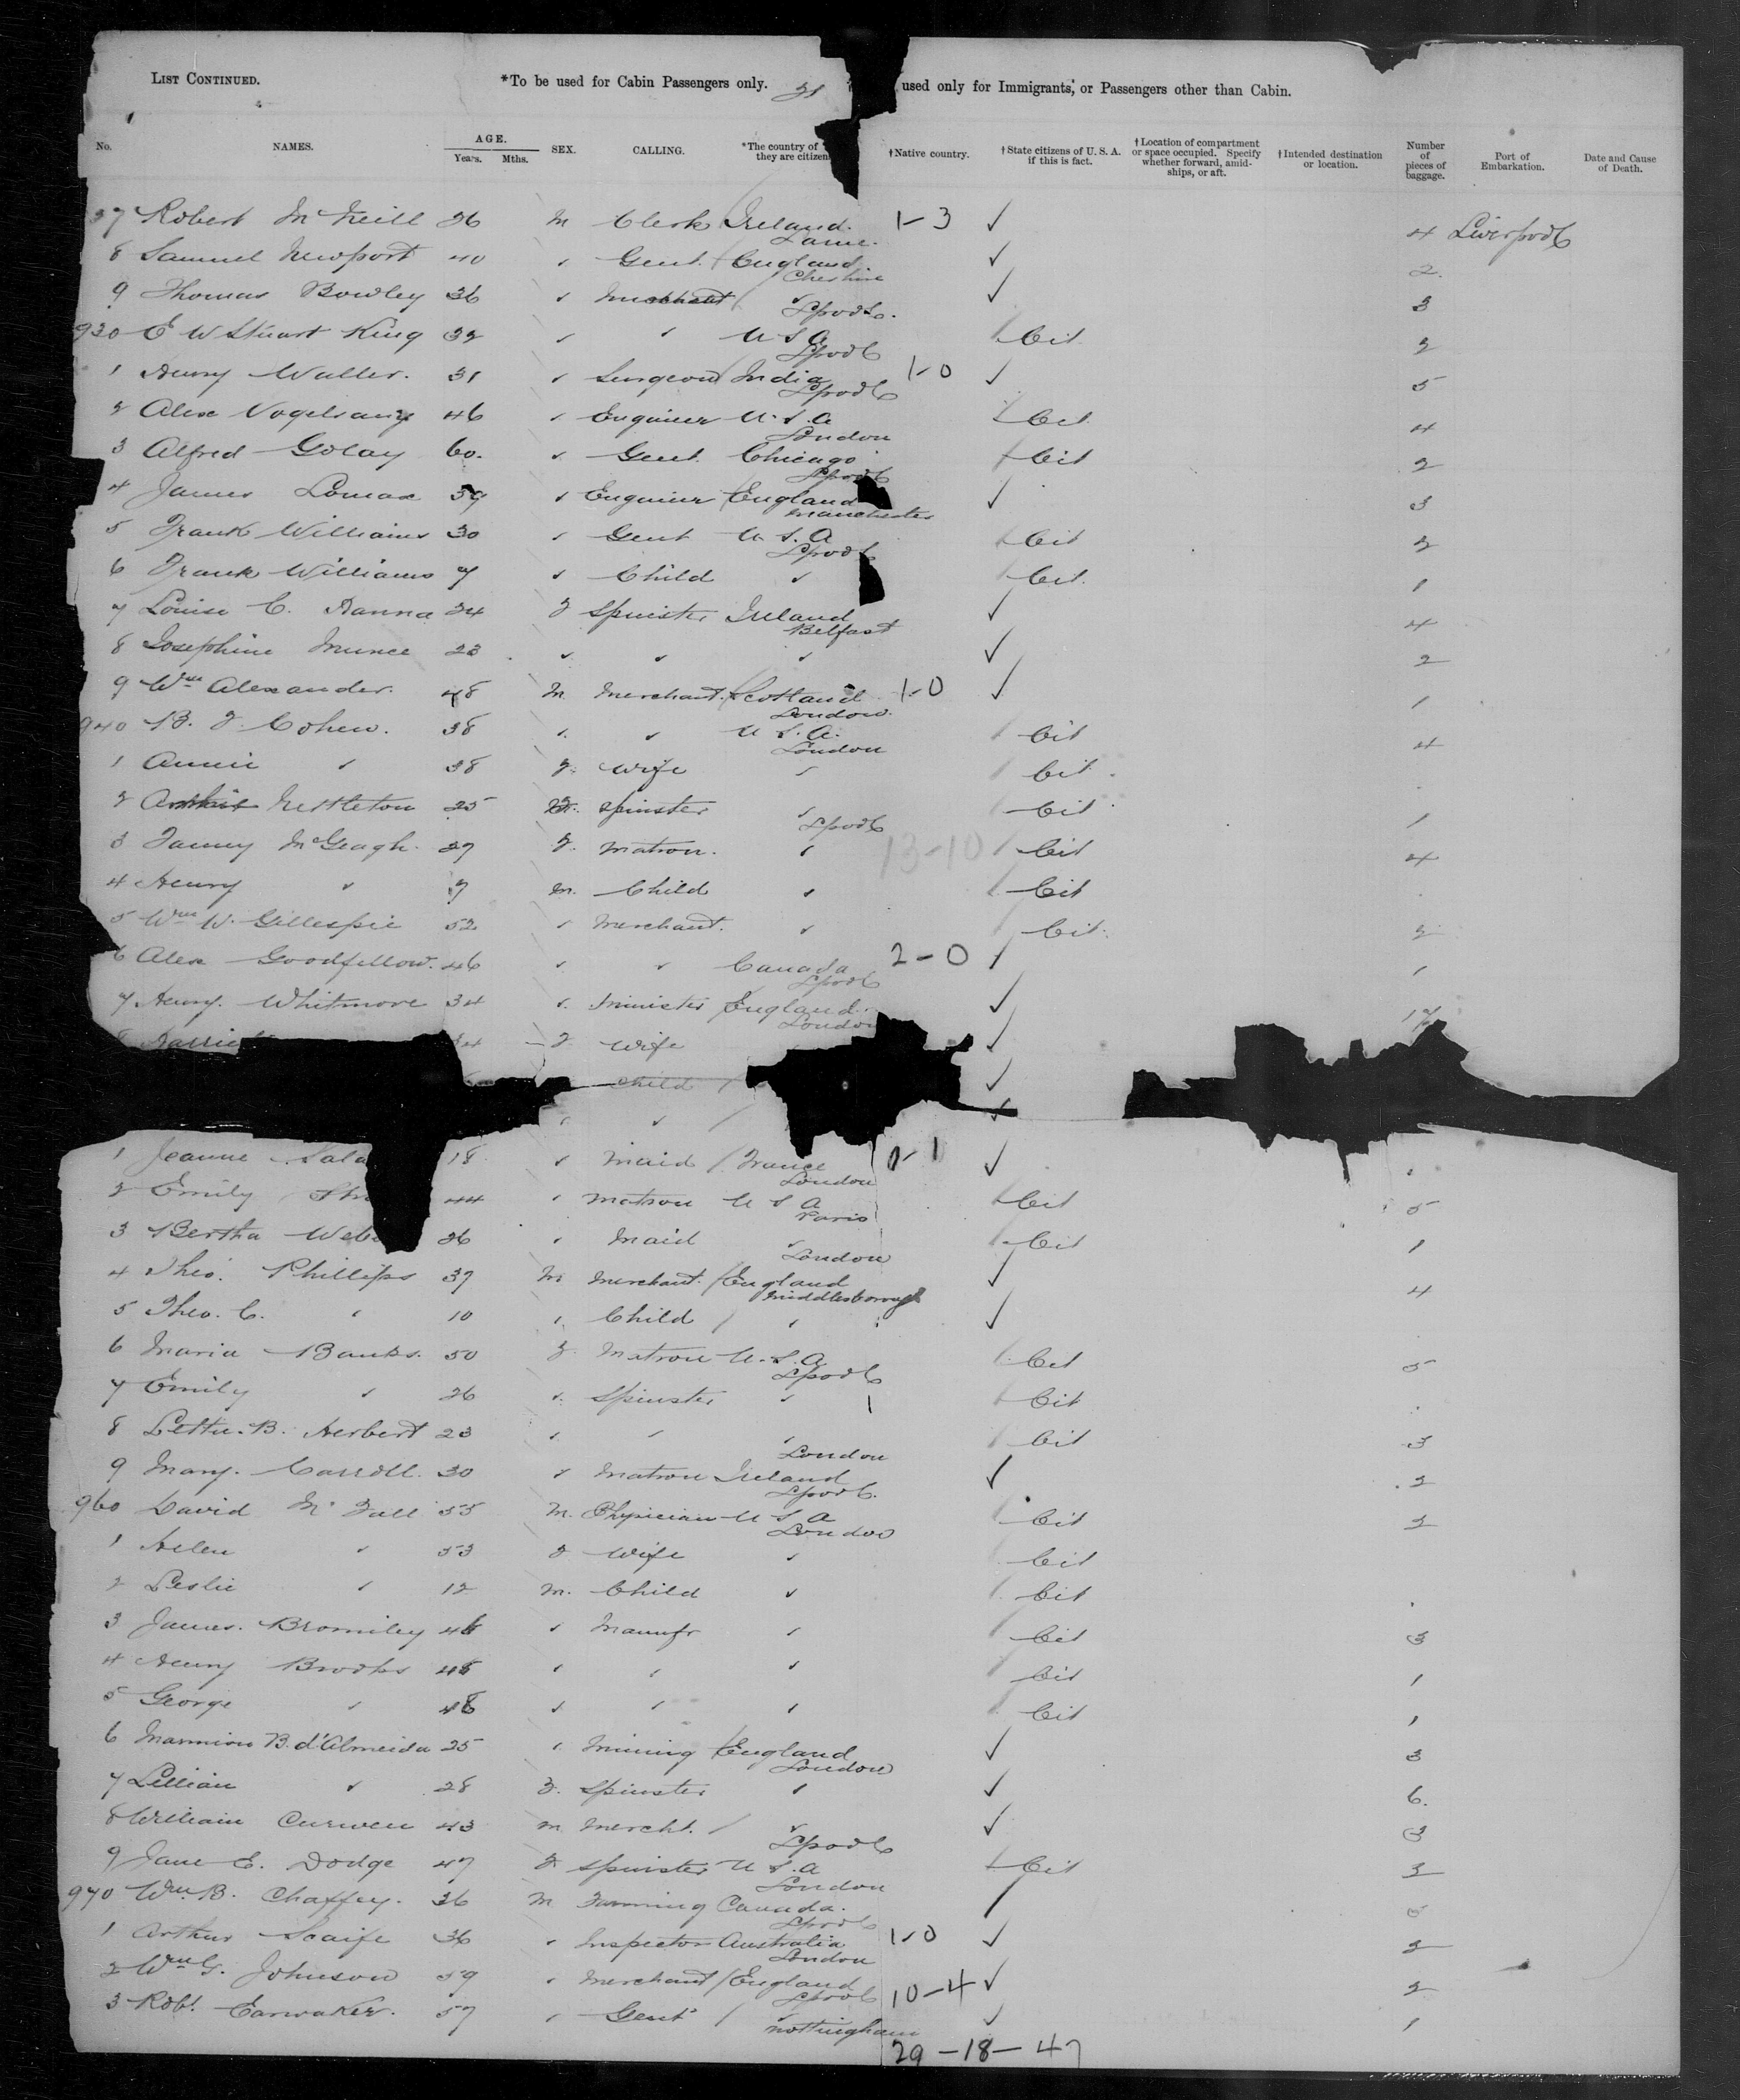 LIST CONTINUED. *To be used for Cabin Passengers only. 21 used only for Immigrants, or Passengers other than Cabin.
No. NAMES. AGE. Years. Mths. SEX. CALLING. *The country of they are citizen †Native country. †State citizens of U. S. A. if this is fact. †Location of compartment or space occupied. Specify whether forward, amidships, or aft. †Intended destination or location. Number of pieces of baggage. Port of Embarkation. Date and Cause of Death.
27 Robert McNeill 26 M Clerk Ireland Larne. 1-3 ✓ 4 Liverpool
8 Samuel Newport 40 ✓ Gent. England Cheshire ✓ 2
9 Thomas Bowley 36 ✓ Merchant ✓ Lpool. ✓ 3
930 E W Stuart King 32 ✓ ✓ U S A Lpool Cit 2
1 Henry Waller. 31 ✓ Surgeon India Lpool 1-0 ✓ 5
2 Alex Vogelsang 46 ✓ Engineer U.S.A London Cit 4
3 Alfred Golay 60. ✓ Gent. Chicago Lpool Cit 2
4 James Lomax 39 ✓ Engineer England Manchester ✓ 3
5 Frank Williams 30 ✓ Gent U.S.A Lpool Cit 2
6 Frank Williams 7 ✓ Child ✓ Cit. 1
7 Louise C. Hanna 24 F Spinster Ireland Belfast ✓ 4
8 Josephine Munce 23 ✓ ✓ ✓ ✓ 2
9 Wm Alexander. 48 M Merchant. Scotland London. 1-0 ✓ 1
940 B. F. Cohen. 38 ✓ ✓ U.S.A. London Cit 4
1 Annie ✓ 38 F. Wife ✓ Cit.
2 Nettleton 25 F. Spinster ✓ Lpool Cit 1
3 Fanny McGeagh. 27 F. Matron. ✓ 13-10 Cit 4
4 Henry ✓ 7 M. Child ✓ Cit
5 Wm W. Gillespie 52 ✓ Merchant. ✓ Cit. 2
6 Alex Goodfellow. 46 ✓ ✓ Canada Lpool 2-0 ✓ 1
7 Henry. Whitmore 34 ✓ Minister England London ✓ 17
8 Harriet 34 F Wife ✓
Child ✓
✓ ✓ ✓
1 Jeanne 18 ✓ Maid France London 0-1 ✓
2 Emily 44 ✓ Matron U S A Paris Cit 5
3 Bertha Web 26 ✓ Maid ✓ London Cit 1
4 Theo. Phillips 37 M Merchant. England Middlesborough ✓ 4
5 Theo. C. ✓ 10 ✓ Child ✓ ✓
6 Maria Banks. 50 F. Matron U.S.A Lpool Cit 5
7 Emily ✓ 26 ✓ Spinster ✓ Cit
8 B. Herbert 23 ✓ ✓ ✓ London Cit 3
9 Mary. Carroll. 30 ✓ Matron Ireland Lpool. ✓ 2
960 David McFall 55 M. Physician U S A London Cit 2
1 Helen ✓ 53 F Wife ✓ Cit
2 Leslie ✓ 12 M. Child ✓ Cit
3 James. Bromiley 48 ✓ Manufr ✓ Cit 3
4 Henry Brooks 45 ✓ ✓ ✓ Cit 1
5 George ✓ 48 ✓ ✓ ✓ Cit 1
6 Marmion B. d'Almeida 25 ✓ Mining England London ✓ 3
7 Lillian ✓ 28 F. Spinster ✓ ✓ 6.
8 William Curwen 43 M Mercht. ✓ Lpool ✓ 3
9 Jane E. Dodge 47 F. Spinster U S.A London Cit 2
970 Wm B. Chaffey. 36 M Farming Canada. Lpool ✓ 5
1 Arthur Scaife 36 ✓ Inspector Australia London 1-0 ✓ 2
2 Wm G. Johnson 59 ✓ Merchant England Lpool 10-4 ✓ 2
3 Robt. Earwaker. 57 ✓ Gent ✓ Nottingham ✓ 1
29-18-47